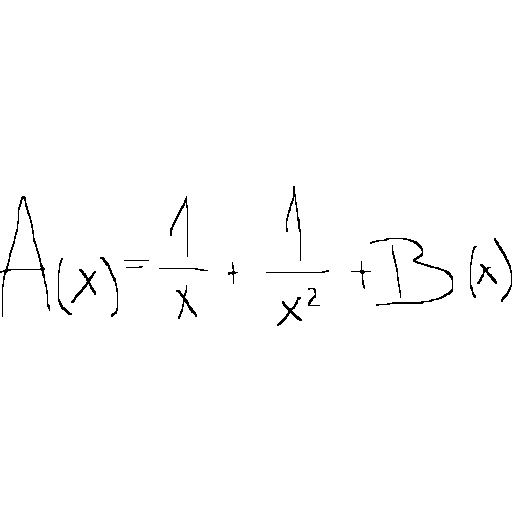 A(x) = 1/x + 1/x² + B(x)